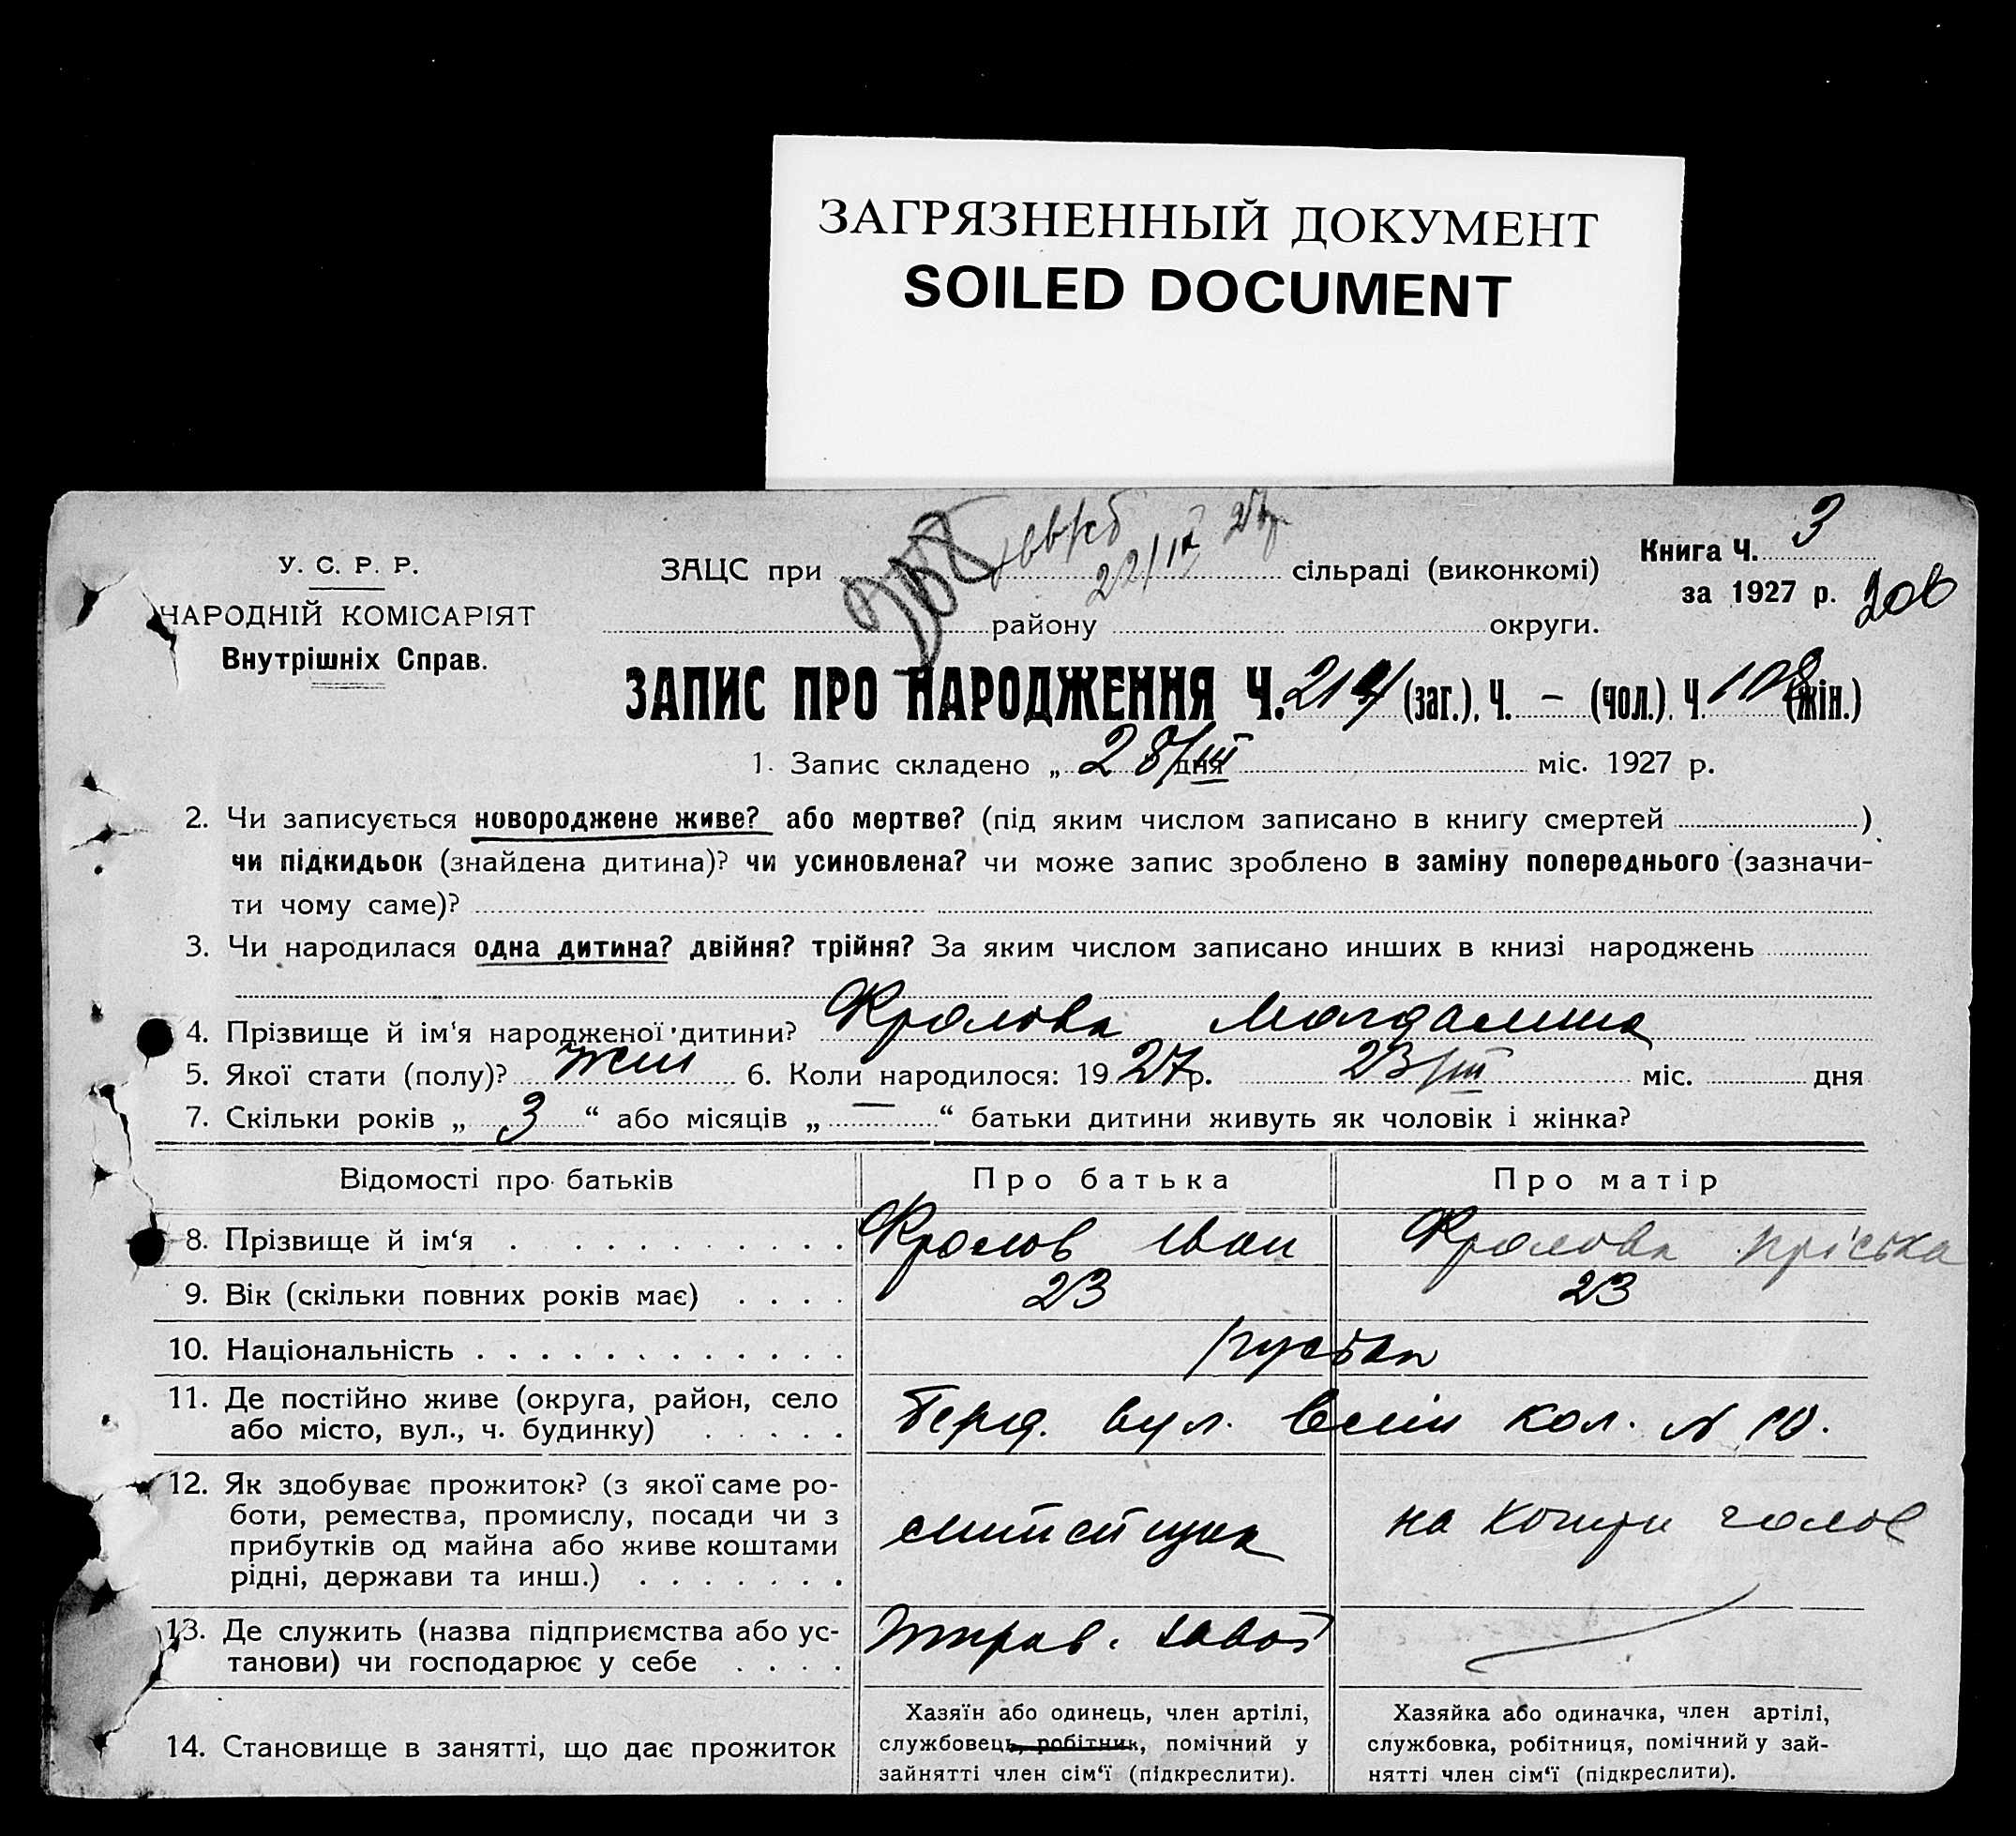 ЗАГРЯЗНЕННЫЙ ДОКУМЕНТ
SOILED DOCUMENT
У. С. Р. Р.
НАРОДНІЙ КОМІСАРІЯТ
Внутрішніх Справ.
ЗАЦС при 22/IX 27р сільраді (виконкомі)
району округи.
Книга Ч. 3
за 1927 р. 206
ЗАПИС ПРО НАРОДЖЕННЯ Ч. 214 (заг.), Ч. – (чол.), Ч. 108 (жін.)
1. Запис складено „ 28/III дня міс. 1927 р.
2. Чи записується новороджене живе? або мертве? (під яким числом записано в книгу смертей )
чи підкидьок (знайдена дитина)? чи усиновлена? чи може запис зроблено в заміну попереднього (зазначи-
ти чому саме)?
3. Чи народилася одна дитина? двійня? трійня? За яким числом записано инших в книзі народжень
4. Прізвище й ім‘я народженої дитини? Фролова Магдалина
5. Якої стати (полу)? жін 6. Коли народилося: 1927 р. 23/III міс. дня
7. Скільки років „ 3 “ або місяців „ — “ батьки дитини живуть як чоловік і жінка?
Відомості про батьків Про батька Про матір
8. Прізвище й ім‘я Фролов Іван Фролова Пріська
9. Вік (скільки повних років має) 23 23
10. Національність руська
11. Де постійно живе (округа, район, село
або місто, вул., ч. будинку) Берд. вул. кол. № 10.
12. Як здобуває прожиток? (з якої саме ро-
боти, ремества, промислу, посади чи з
прибутків од майна або живе коштами
рідні, держави та инш.) на кошти чолов
13. Де служить (назва підприємства або ус-
танови) чи господарює у себе завод
14. Становище в занятті, що дає прожиток
Хазяїн або одинець, член артілі,
службовець, робітник, помічний у
зайнятті член сім‘ї (підкреслити).
Хазяйка або одиначка, член артілі,
службовка, робітниця, помічний у зай-
нятті член сім‘ї (підкреслити).